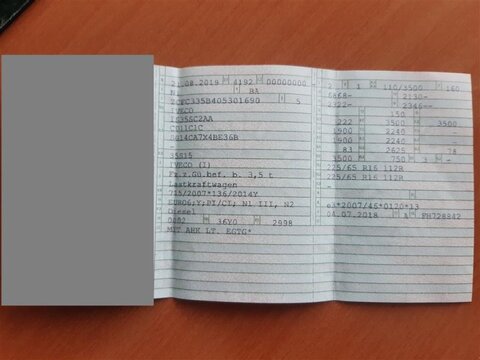 21.08.2019 4192 00000000
N1 BA
ZCFC335B405301690 5
IVECO
IC35SC2AA
CO11C1C
35S15
IVECO (I)
Fz.z.Gü.bef. b. 3,5 t
Lastkraftwagen
715/2007*136/2014Y
EURO6;Y;PI/CI; N1 III, N2
Diesel
0002 36Y0 2998
MIT AHK LT. EGTG*
2 1 110/3500 160
6868- 2130-
2322- 2346--
150
2222 3500 3500
1900 2240 -
1900 2240 -
83 2625 78
3500 750 3 -
225/65 R16 112R
225/65 R16 112R
-
e3*2007/46*0120*13
04.07.2018 A FH728842